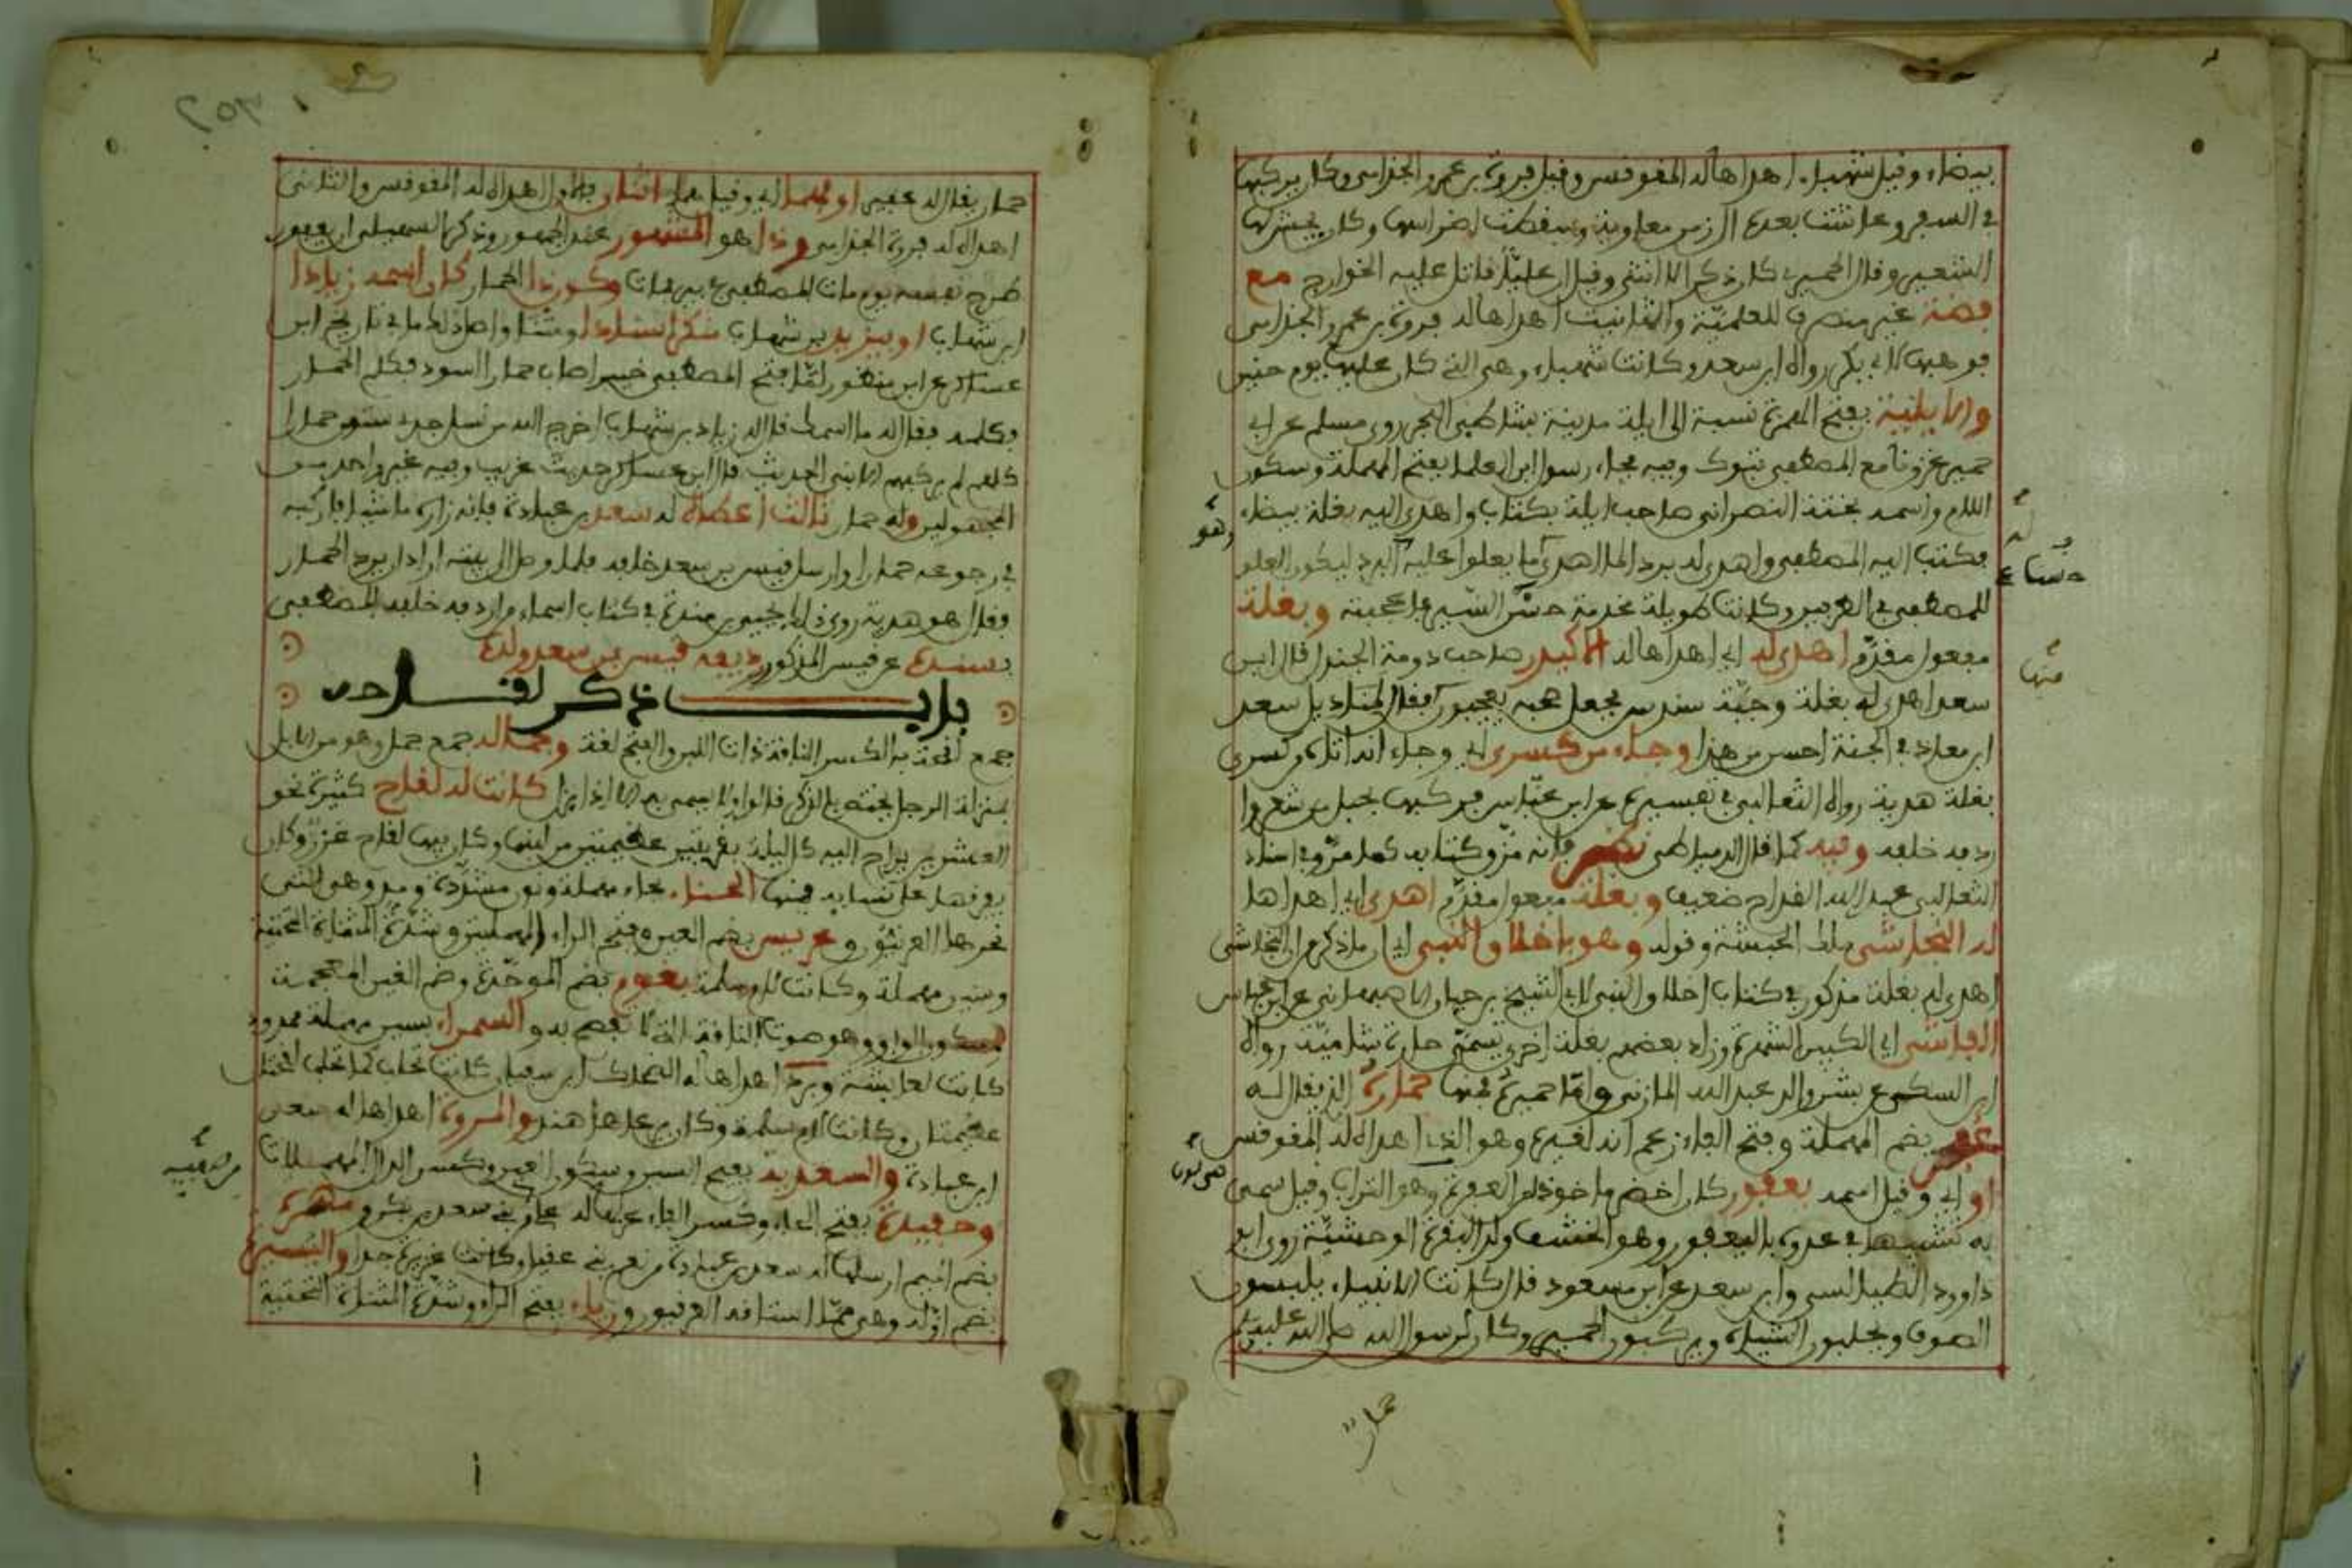 بيضاء وقيل شهباء اهداها له المقوقس وقيل فروة بن عمرو الجذامى وكان يركبها
في السفر وعاشت بعده الى زمن معاوية وسقطت اضراسها وكان يجش لها
الشعير وقال الحميرى كان ذكرا لا انثى وقيل ان عليا قاتل عليها الخوارج مع
فضة غير منصرف للعلمية والتانيث اهداها له فروة بن عمرو الجذامى
فوهبها لابى بكر رواه ابن سعد وكانت شهباء وهى التى كان عليها يوم حنين
والايلية بفتح الهمزة نسبة الى ايلة مدينة بشاطئ البحر روى مسلم عن ابى
حميد غزونا مع المصطفى تبوك وفيه فجاء رسول ابن العلما بفتح المهملة وسكون
اللام واسمه يحنة النصرانى صاحب ايلة بكتاب واهدى اليه بغلة بيضاء
فكتب اليه المصطفى واهدى له برد
للمصطفى في الفريقين وكانت طويلة حسنة السير فاعجبته وبغلة
مفعول مقدم اهدى له اى اهداها له الاكيدر صاحب دومة الجندل قال ابن
سعد اهدى له بغلة وجبة سندس فجعل صحبه يعجبون فقال لمناديل سعد
ابن معاذ في الجنة احسن من هذا وجاء من كسرى اى وجاء انه اتاه من كسرى
بغلة هدية رواه الثعالبى في تفسيره عن ابن عباس فركبها بحبل من شعر وا
ردفه خلفه وفيه كما قال الدمياطى نظر فانه مزق كتابه كما مر وفي اسناد
الثعالبى عبد الله القداح ضعيف وبغلة مفعول مقدم اهدى اى اهداها
له النجاشى ملك الحبشة وقوله وهو باخلاق النبى اى ما ذكر من ان النجاشى
اهدى له بغلة مذكور في كتاب اخلاق النبى لابى الشيخ بن حيان الاصبهانى عن ابن عباس
الفاشى اى الكثير الشهرة وزاد بعضهم بغلة اخرى تسمى حمارة شامية رواه
ابن السكن عن بشر والد عبد الله المازنى واما حميره فمنها حماره الذى يقال له
عفير بضم المهملة وفتح الفاء زعم انه لغيره وهو الذى اهداه له المقوقس
او اى وقيل اسمه يعفور كان اخضر ماخوذ من العفرة وهو التراب وقيل سمى
به تشبيها في عدوه باليعفور وهو الخشف ولد البقرة الوحشية روى ابو
داوود الطيالسى وابن سعد عن ابن مسعود قال كانت الانبياء يلبسون
الصوف ويحلبون الشياه ويركبون الحمير وكان لرسول الله صلى الله عليه
حمار
حمار يقال له عفير او هما اى وقيل هما اثنان فالاول اهداه له المقوقس والثانى
اهداه له فروة الجذامى وذا هو المشهور عند الجمهور وذكر السهيلى ان يعفور
طرح نفسه يوم مات المصطفى في بير فمات وكون ذا الحمار كان اسمه زيادا
ابن شهاب او يزيد بن شهاب منكر اسنادا ومتنا واصل ذلك ما في تاريخ ابن
عساكر عن ابن منظور لما فتح المصطفى خيبر اصاب حمارا اسود فكلم الحمار
فكلمه فقال له ما اسمك قال له زياد بن شهاب اخرج الله من نسل جدى ستين حمارا
كلهم لم يركبهم الا نبى الحديث قال ابن عساكر حديث غريب وفيه غير واحد من
المجهولين وله حمار ثالث اعطاه له سعد بن عبادة فانه زاره ماشيا فاركبه
في رجوعه حمارا وارسل قيس بن سعد خلفه فلما وصل الى بيته اراد ان يرد الحمار
فقال هو هدية روى ذلك يحيى بن مندة في كتاب اسماء من اردفه خلفه المصطفى
بسنده عن قيس المذكور رديفه قيس بن سعد ولده
باب ذكر لقاحه
جمع لقحة بالكسر الناقة ذات اللبن والفتح لغة وجماله جمع جمل وهو من الابل
بمنزلة الرجل يختص بالذكر قالوا ولا يسمى به الا اذا بزل كانت له لقاح كثيرة نحو
العشرين يراح اليه كل ليلة بقربتين عظيمتين من لبنها وكان فيها لقاح غزر وكان
يفرقها على نسايه فمنها الحناء بحاء مهملة ونون مشددة ومد وهى التى
نحرها العرنيون وعريس بضم العين وفتح الراء المهملتين وشدة المثناة التحتية
وسين مهملة وكانت لام سلمة بغوم بضم الموحدة وضم الغين المعجمة
وسكون الواو وهو صوت الناقة التى لا تفصح به والسمراء بسين مهملة ممدود
كانت لعايشة وبردة اهداها له الضحاك ابن سفيان كانت تحلب كما تحلب لقحتان
عظيمتان وكانت لام سلمة وكان يرعاها هند والمروة اهداها له سعد
ابن عبادة والسعدية بفتح السين وسكون العين وكسر الدال المهملات
وحفيدة بفتح الحاء وكسر الفاء من بنى سعد بن بكر ومهرة
بضم الميم ارسلها له سعد بن عبادة من نعم بنى عقيل وكانت غزيرة جدا واليسيرة
بضم اوله وهى مما استاقه العرنيون ورياء بفتح الراء وشدة المثناة التحتية